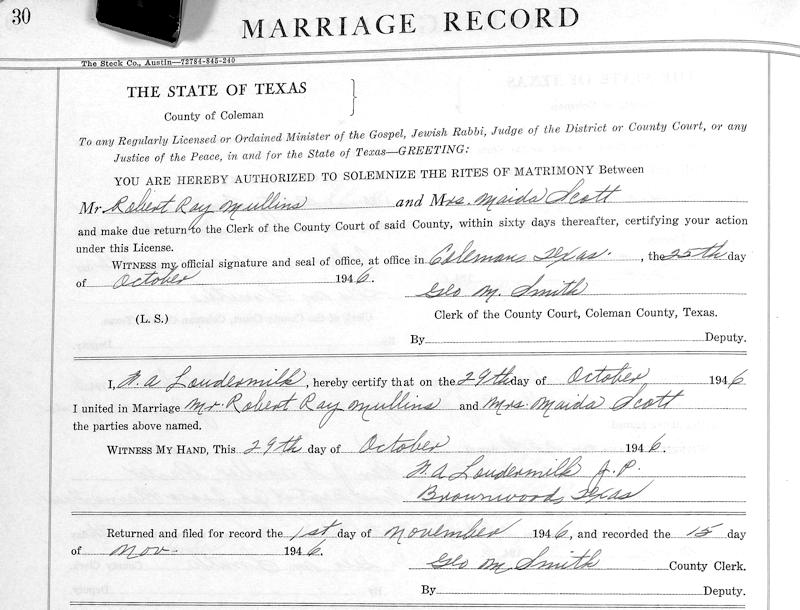 30
MARRIAGE RECORD
The Steck Co., Austin—72784-845-240
THE STATE OF TEXAS
County of Coleman
To any Regularly Licensed or Ordained Minister of the Gospel, Jewish Rabbi, Judge of the District or County Court, or any
Justice of the Peace, in and for the State of Texas—GREETING:
YOU ARE HEREBY AUTHORIZED TO SOLEMNIZE THE RITES OF MATRIMONY Between
Mr. Robert Ray Mullins and Mrs. Maida Scott
and make due return to the Clerk of the County Court of said County, within sixty days thereafter, certifying your action
under this License.
WITNESS my official signature and seal of office, at office in Coleman, Texas., the 25th day
of October 1946.
Geo M. Smith
(L. S.) Clerk of the County Court, Coleman County, Texas.
By Deputy.
I, W. A Loudermilk, hereby certify that on the 29th day of October 1946
I united in Marriage Mr. Robert Ray Mullins and Mrs. Maida Scott
the parties above named.
WITNESS MY HAND, This 29th day of October 1946.
W. A Loudermilk J. P.
Brownwood, Texas
Returned and filed for record the 1st day of November 1946, and recorded the 15 day
of Nov. 1946.
Geo M Smith County Clerk.
By Deputy.